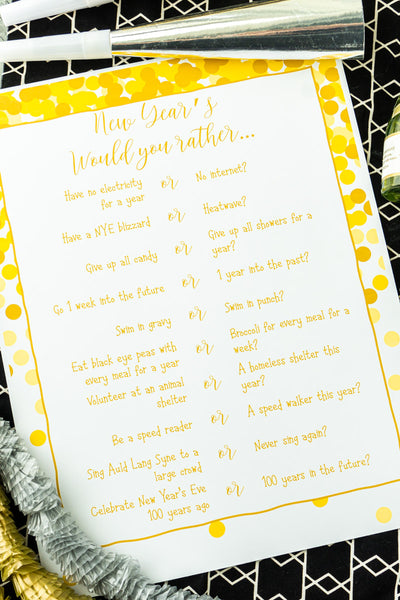 New Year's
Would you rather...
Have no electricity for a year or No internet?
Have a NYE blizzard or Heatwave?
Give up all candy or Give up all showers for a year?
Go 1 week into the future or 1 year into the past?
Swim in gravy or Swim in punch?
Eat black eye peas with every meal for a year or Broccoli for every meal for a week?
Volunteer at an animal shelter or A homeless shelter this year?
Be a speed reader or A speed walker this year?
Sing Auld Lang Syne to a large crowd or Never sing again?
Celebrate New Year's Eve 100 years ago or 100 years in the future?